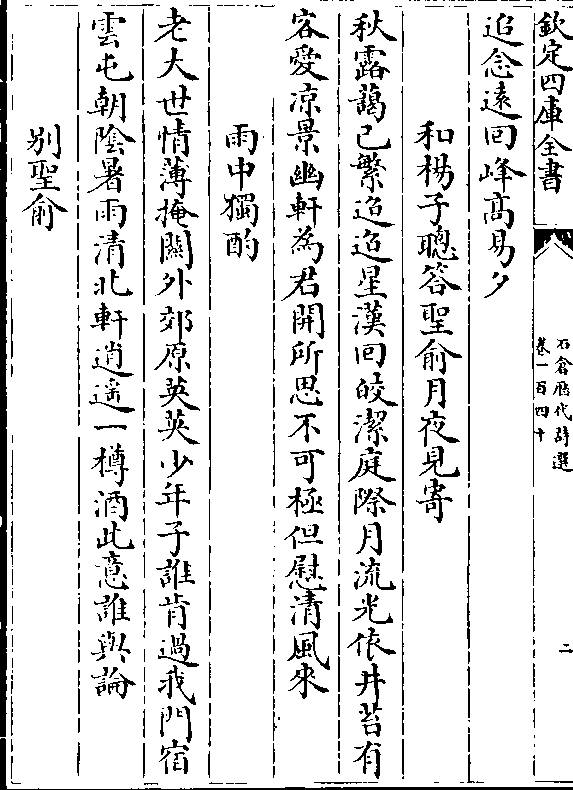 欽定四庫全書
石倉歴代詩選
卷一百四十
二
追念遠回峰高易夕
和楊子聰答聖俞月夜見寄
秋露藹已繁迢迢星漢回皎潔庭際月流光依井苔有
客愛凉景幽軒為君開所思不可極但慰清風來
雨中獨酌
老大世情薄掩關外郊原英英少年子誰肯過我門宿
雲屯朝陰暑雨清北軒逍遥一樽酒此意誰與論
别聖俞